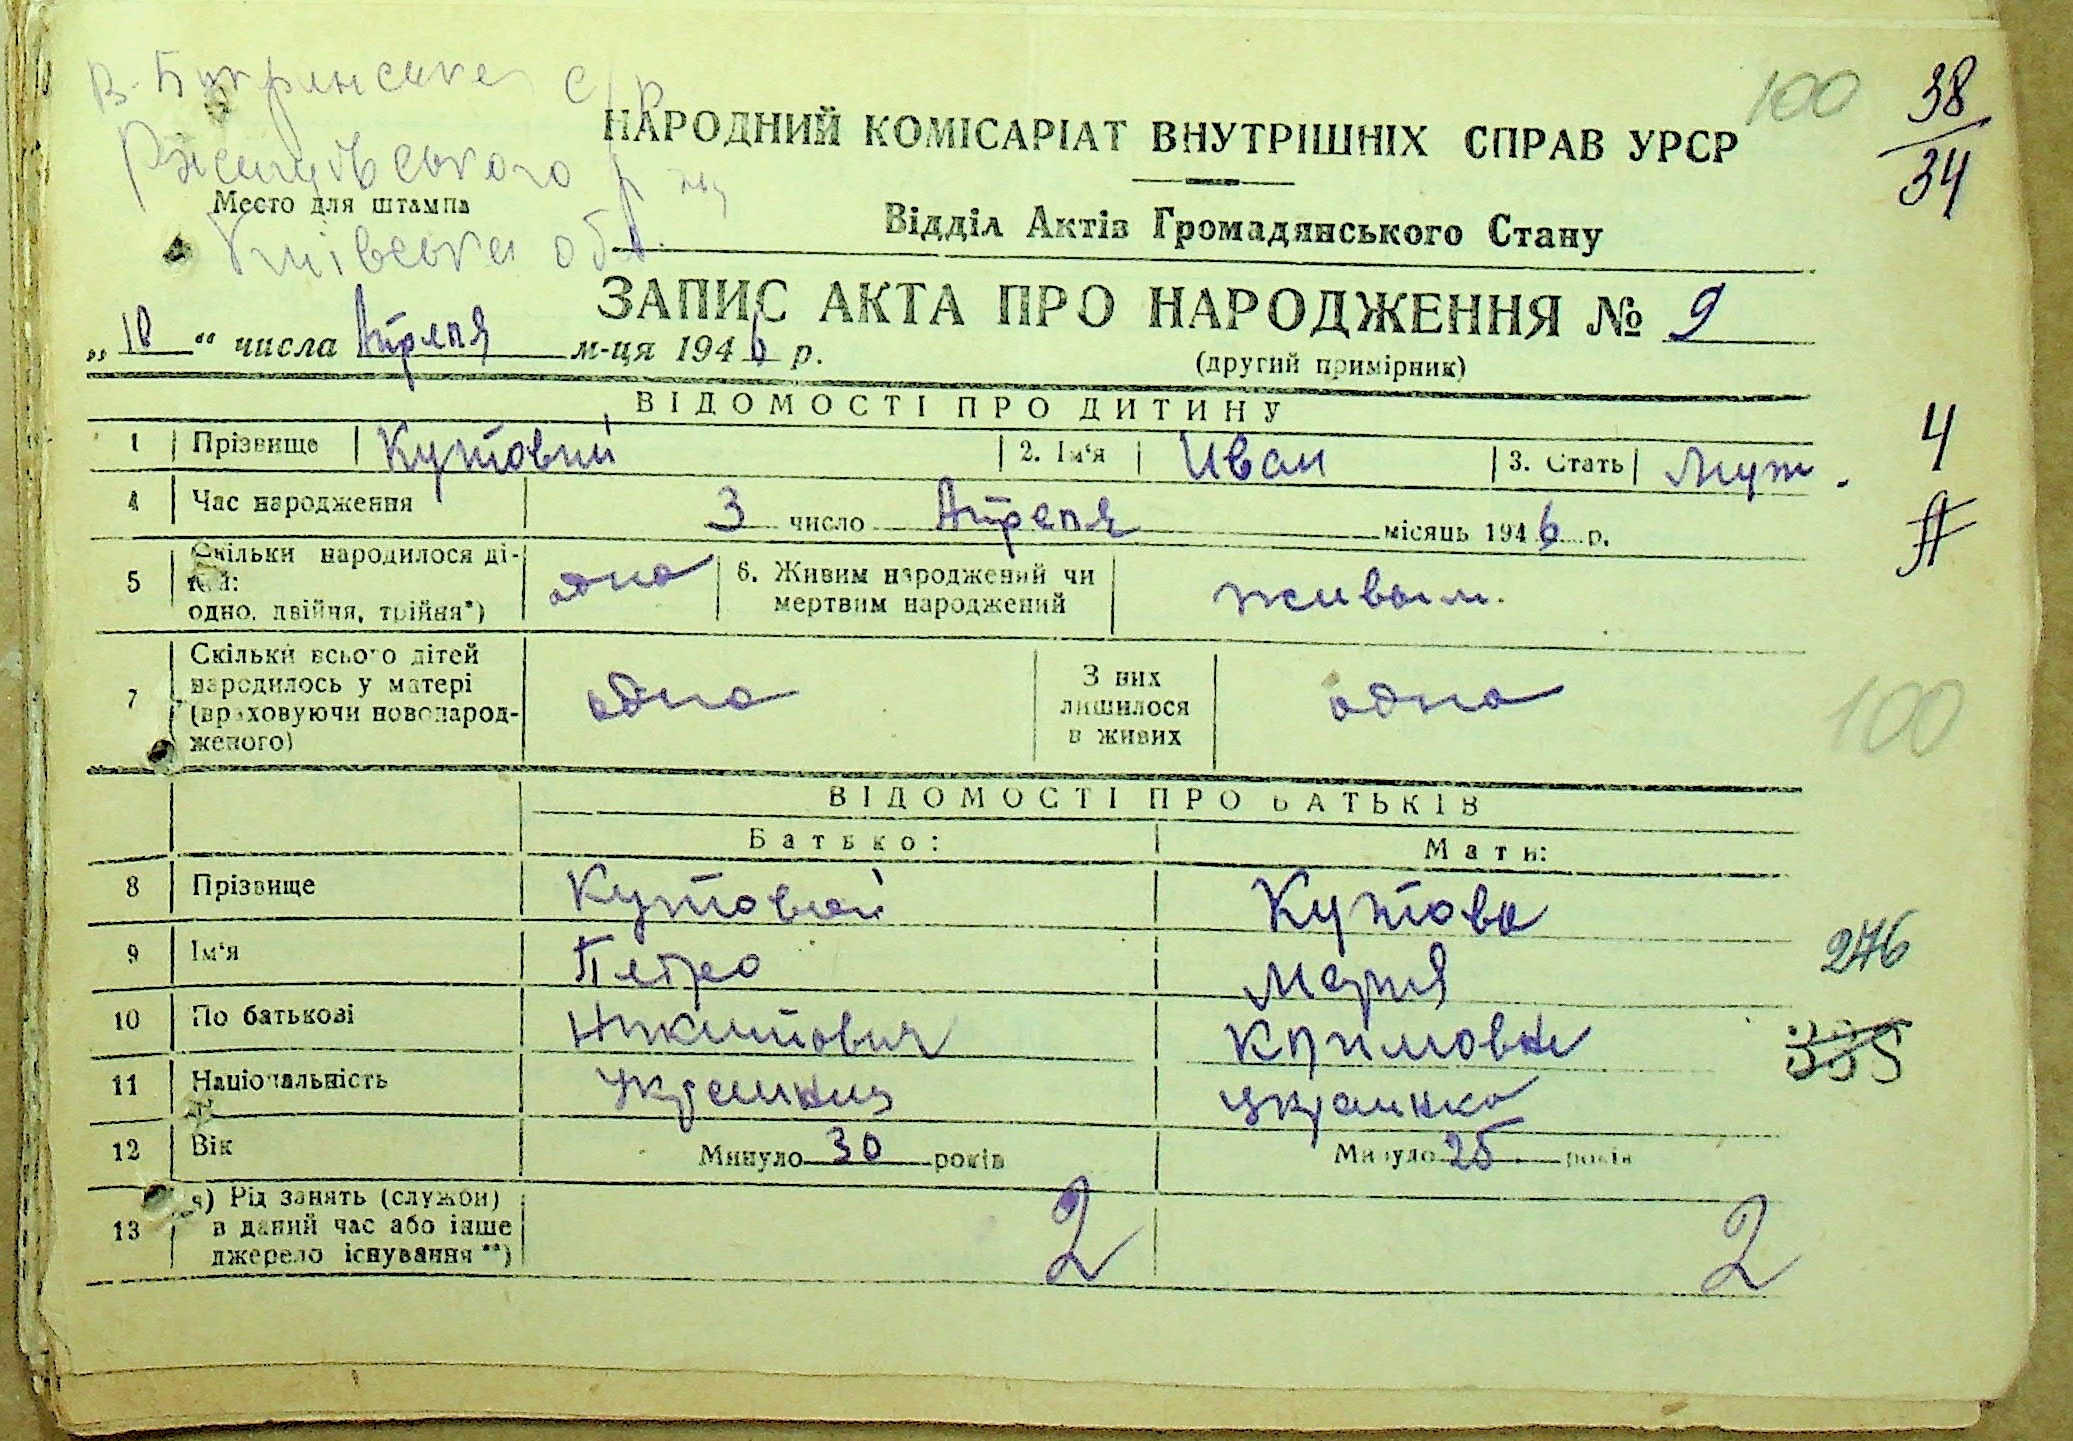 В-Букринська с/р
Ржищівського р-ну
Місто для штампа
Київська обл.
100
38
34
НАРОДНИЙ КОМІСАРІАТ ВНУТРІШНІХ СПРАВ УРСР
Відділ Актів Громадянського Стану
ЗАПИС АКТА ПРО НАРОДЖЕННЯ № 9
„18“ числа Апреля м-ця 1946 р.
(другий примірник)
ВІДОМОСТІ ПРО ДИТИНУ
1 Прізвище Кутовий 2. Ім‘я Иван 3. Стать Муж.
4
4 Час народження 3 число Апреля місяць 1946 р.
5 Скільки народилося дітей: одно, двійня, трійня*) одно 6. Живим народжений чи мертвим народжений живым.
7 Скільки всього дітей народилось у матері (враховуючи новонародженого) одно З них лишилося в живих одно
100
ВІДОМОСТІ ПРО БАТЬКІВ
Батько: Мати:
8 Прізвище Кутовой Кутова
9 Ім‘я Петро Мария
276
10 По батькові Никитович Климовна
335
11 Національність Украинец украинка
12 Вік Минуло 30 років Минуло 25 років
13 а) Рід занять (служби) в даний час або інше джерело існування **) 2 2